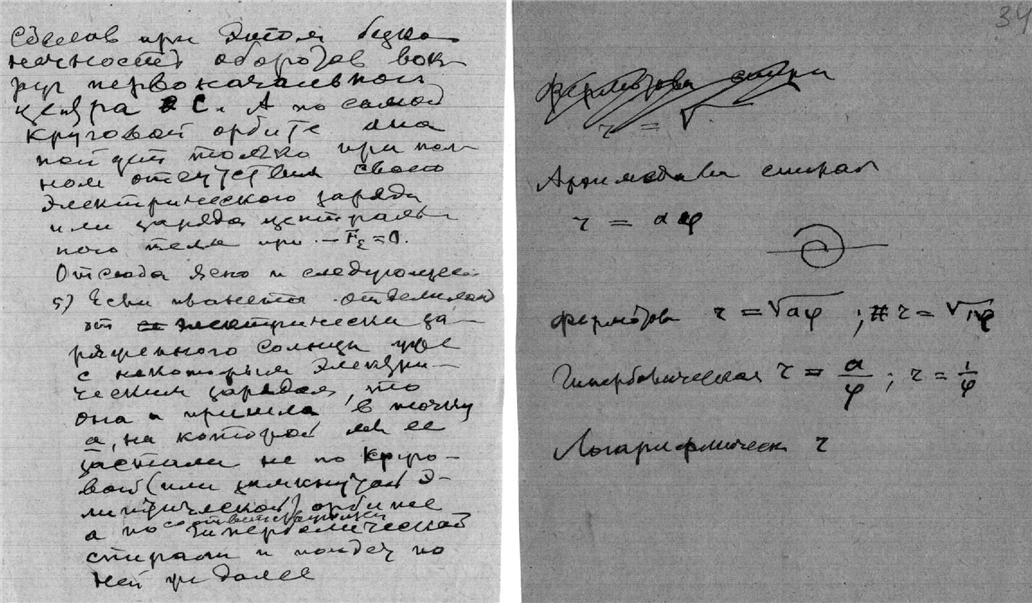 сделав при этом беско-
нечность оборотов вок-
руг первоначального
центра С. А по самой
круговой орбите она
пойдет только при пол-
ном отсутствии своего
электрического заряда
или заряда централь-
ного тела при F_ε = 0.
Отсюда ясно и следующее
5) Если планета отделилась
от электрически за-
ряженного солнца уже
с некоторым электри-
ческим зарядом, то
она и пришла в точку
а, на которой мы ее
застали не по круго-
вой (или замкнутой э-
липтической) орбите
а по соответствующей гиперболической
спирали и пойдет по
ней и далее
34
Ферматова спирал
r = √
Архимедова спирал
r = aφ
Ферматова r = √aφ ; r = √1φ
Гиперболическая r = a/φ ; r = 1/φ
Логарифмическ r